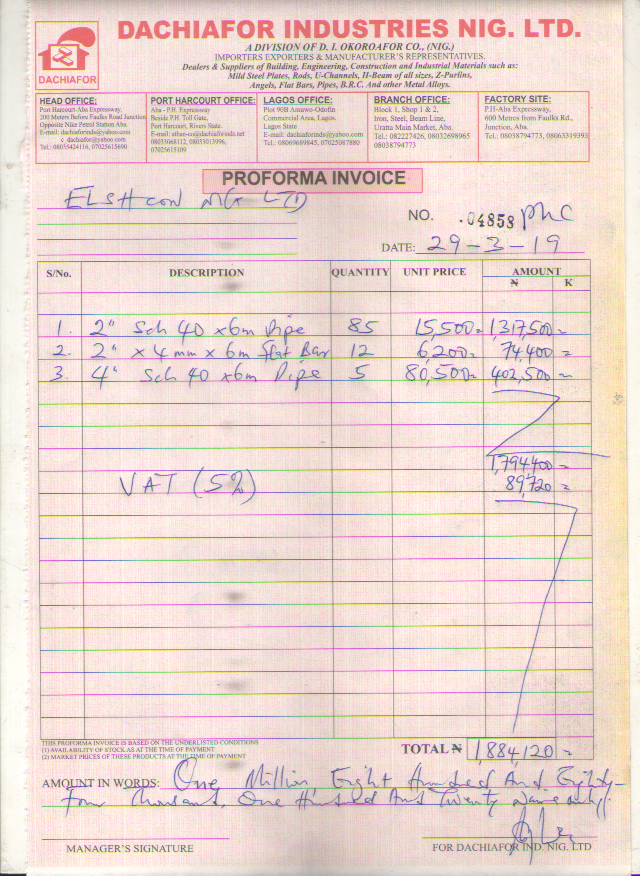 DACHIAFOR INDUSTRIES NIG. LTD.
A DIVISION OF D. I. OKOROAFOR CO., (NIG.)
IMPORTERS EXPORTERS & MANUFACTURER'S REPRESENTATIVES.
Dealers & Suppliers of Building, Engineering, Construction and Industrial Materials such as:
Mild Steel Plates, Rods, U-Channels, H-Beam of all sizes, Z-Purlins,
Angels, Flat Bars, Pipes, B.R.C. And other Metal Alloys.
DACHIAFOR
HEAD OFFICE:
Port Harcourt-Aba Expressway,
200 Meters Before Faulks Road Junction
Opposite Nike Petrol Station Aba.
E-mail: dachiaforinds@yahoo.com
c. dachiafor@yahoo.com
Tel.: 08035424116, 07025615690
PORT HARCOURT OFFICE:
Aba - P.H. Expressway
Beside P.H. Toll Gate,
Port Harcourt, Rivers State.
08033068112, 08033013996,
07025615109
LAGOS OFFICE:
Plot 90B Amuwo-Odofin
Commercial Area, Lagos.
Lagos State
E-mail: dachiaforinds@yahoo.com
Tel.: 08069689845, 07025087880
BRANCH OFFICE:
Block 1, Shop 1 & 2,
Iron, Steel, Beam Line,
Uratta Main Market, Aba.
Tel.: 082227426, 08032698965
08038794773
FACTORY SITE:
P.H-Aba Expressway,
600 Metres from Faulks Rd.,
Junction, Aba.
Tel.: 08038794773, 08063319393
PROFORMA INVOICE
ELSHCON NIG LTD
NO. 04858 PHC
DATE: 29-3-19
S/No. DESCRIPTION QUANTITY UNIT PRICE AMOUNT
₦ K
1. 2" Sch 40 x6m Pipe 85 15,500= 1317,500=
2. 2" x 4mm x 6m flat Bar 12 6,200= 74,400=
3. 4" Sch 40 x6m Pipe 5 80,500= 402,500=
1,794400=
VAT (5%) 89,720=
THIS PROFORMA INVOICE IS BASED ON THE UNDERLISTED CONDITIONS
(1) AVAILABILITY OF STOCK AS AT THE TIME OF PAYMENT
(2) MARKET PRICES OF THESE PRODUCTS AT THE TIME OF PAYMENT
TOTAL ₦ 1,884,120=
AMOUNT IN WORDS: One Million, Eight Hundred And Eighty-
Four Thousand, One Hundred And Twenty Naira only
MANAGER'S SIGNATURE
FOR DACHIAFOR IND. NIG. LTD